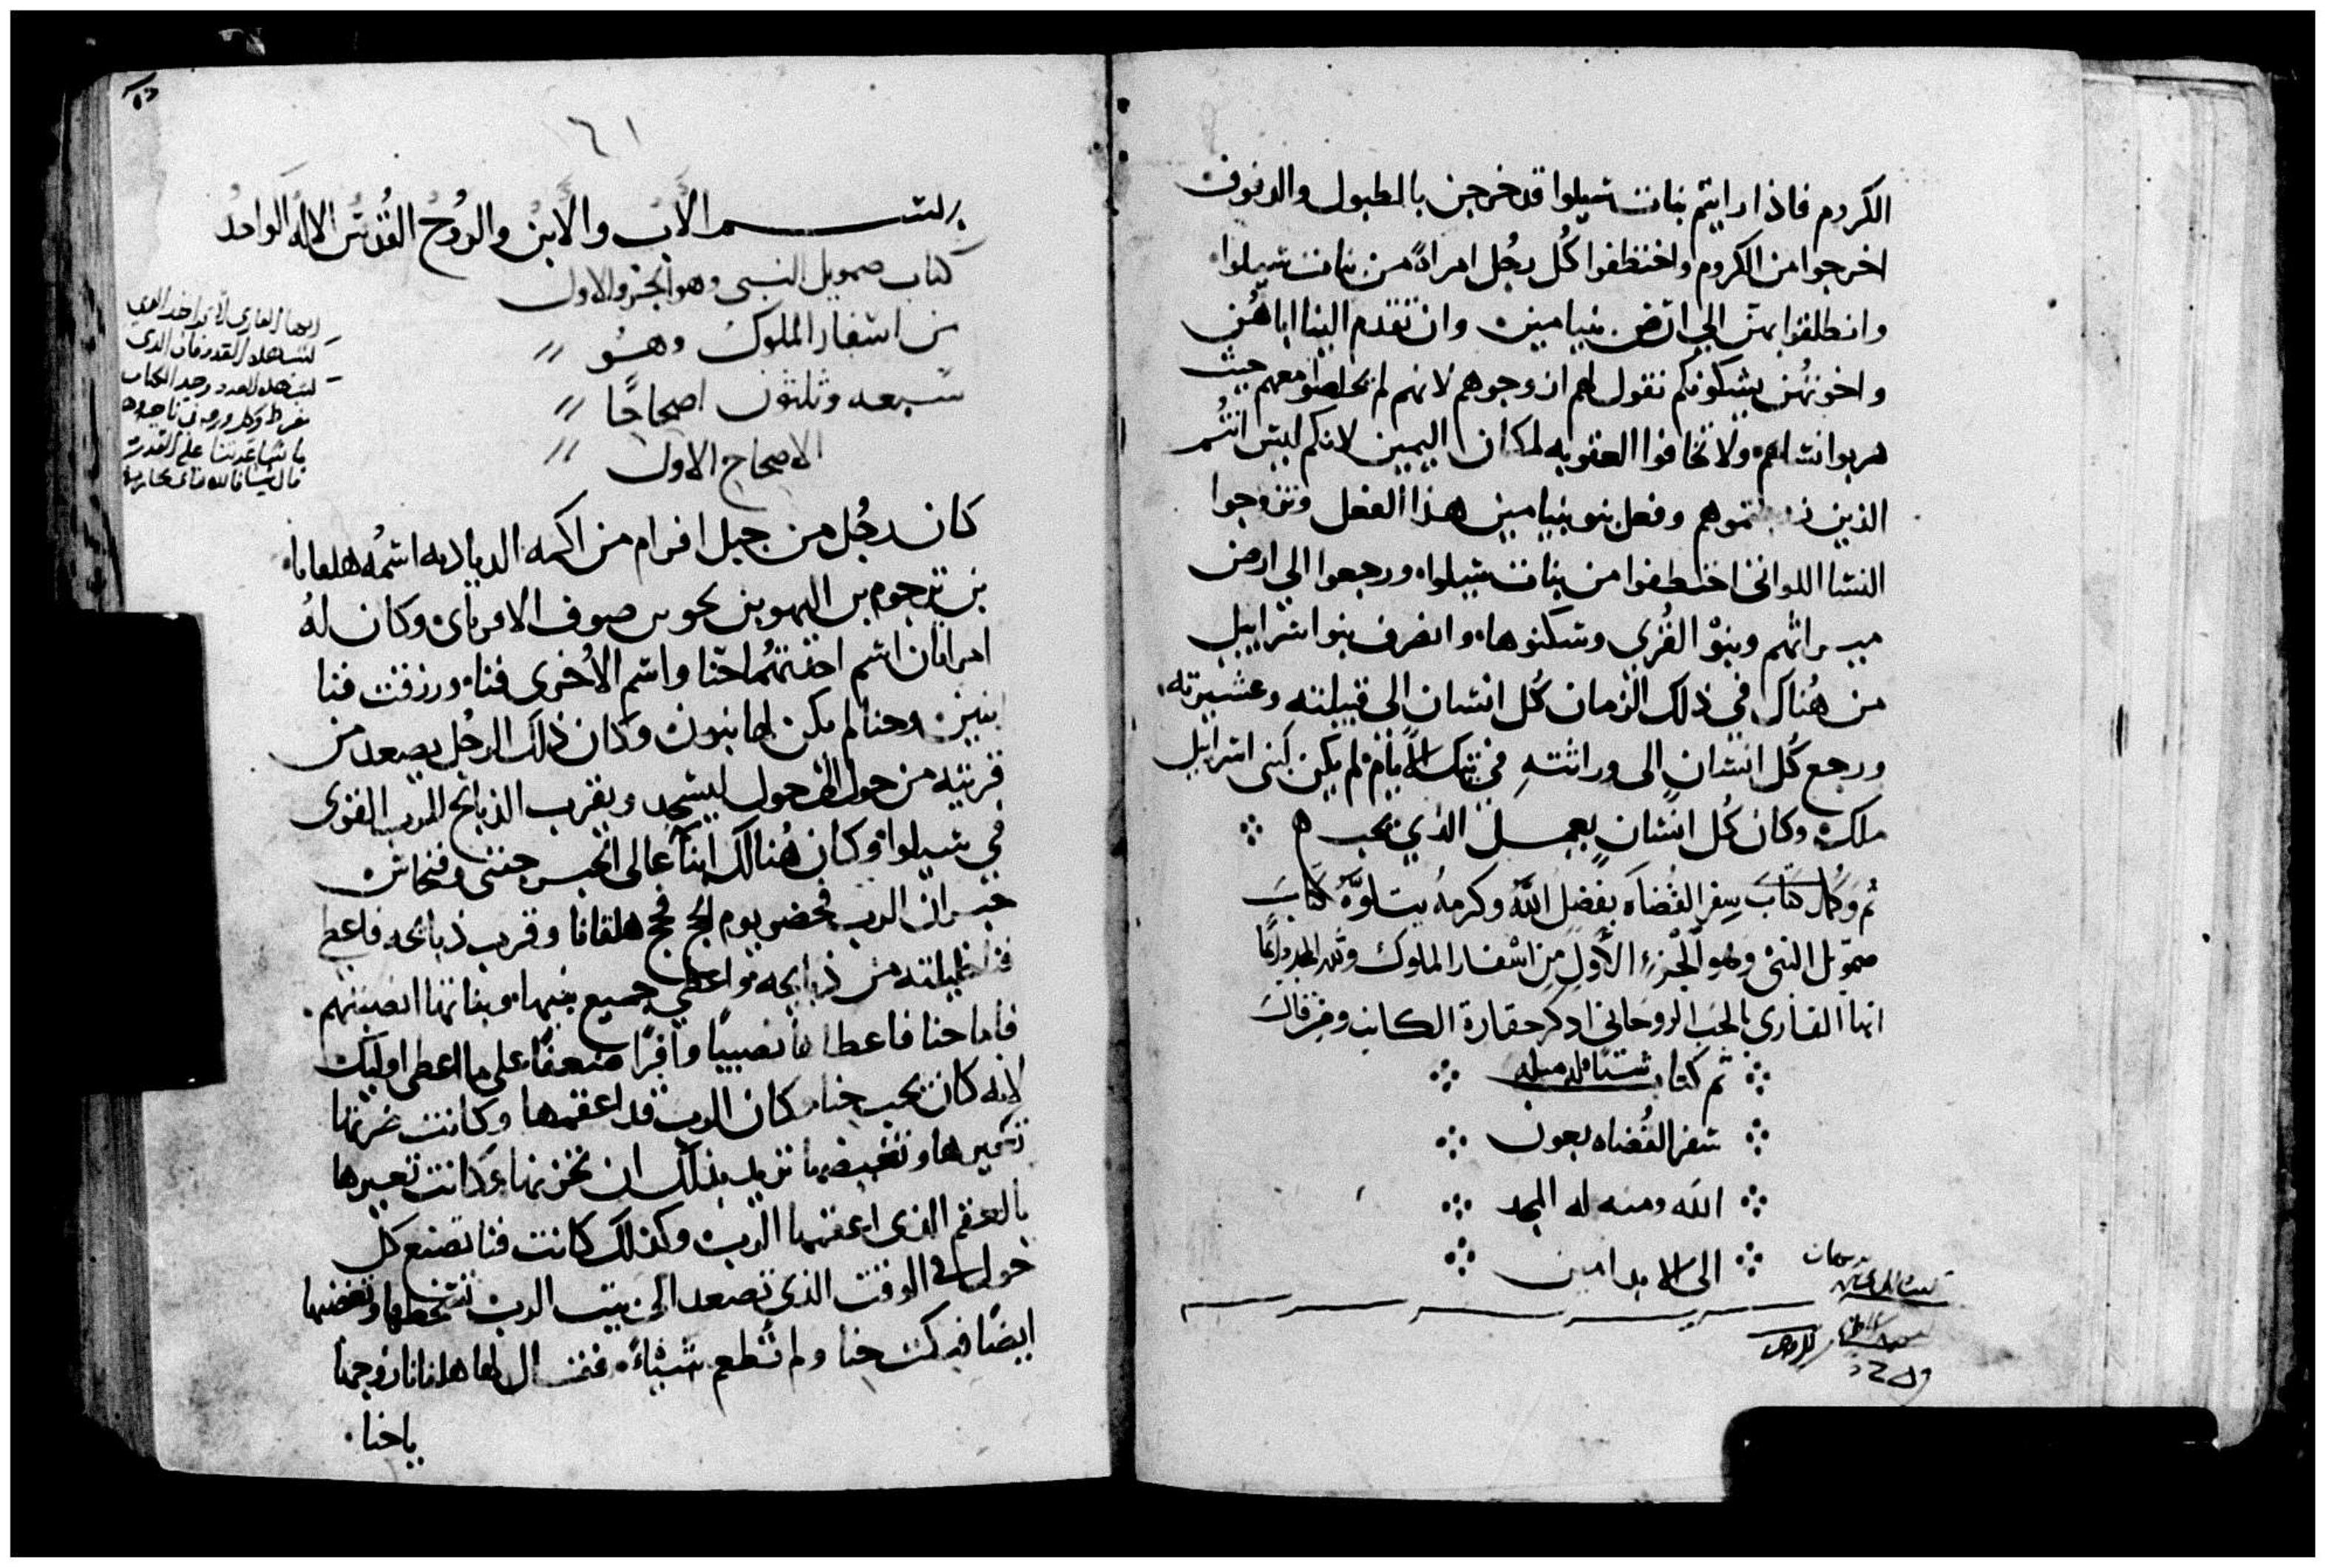 الكروم فاذا رايتم بنات شيلوا قد خرجن بالطبول والدفوف
اخرجوا من الكروم واختطفوا كُل رجُل امراةً من بنات شيلوا
وانطلقوا بهن الي ارض بنيامين وان تقدم الينا اباهُن
واخوتهُن يشكونكم نقول لهم ازوجوهم لانهم لم معهم حيث
هربوا نساهم ولا تخافوا العقوبه لمكان اليمين لانكم ليس انتُم
الذين وفعل بنو بنيامين هذا الفعل وتزوجوا
النسا اللواتي اختطفوا من بنات شيلوا ورجعوا الي ارض
ميراثهم وبنوْ القُري وسكنوها وانصرف بنوا اسراييل
من هُناك في ذلك الزمان كُل انسان الى قبيلته وعشيرته
ورجع كُل انسانٍ الى وراثتهِ في تلك الايام لم يكن لبنى اسراييل
ملك وكان كُل انسانٍ يعمل الذي يحب
تم وكمل كتاب سِفر القُضاه بفضل اللَّه وكرمهُ يتلوَّهُ كتابَ
صمويل النبى وهو الجُزء الأولِ مِن اسفار الملوك
ايها القارى بالحب الروحانى ادكر حقارة الكاتب
تم كتاب
سفر القُضاه بعون
اللَّه ومنه له المجد
الى الابد امين
٦١
بسم الأب والأبن والرُوحُ القُدس الاله الواحدُ
كتاب صمويل النبى وهو الجزو الاول
من اسفار الملوك وهو
سبعه وثلثون اصحاحًا
الاصحاح الاول
كان رجُل من جبل افرام من اكمه اسمُه هلقانا
بن يرجوم بن اليهو بن نحو بن صوف وكان لهُ
امراتان اسم احدتهُما حنا واسم الاُخرى فنا ورزقت فنا
بنين وحنا لم يكن لها بنون وكان ذلك الرجُل يصعد من
قريته من حول الى حول ليسجد ويقرب الذبايح للرب القوى
في شيلوا وكان هُنالك ابنا عالى الحبر حفنى وفنحاس
حبران الرب فحضر يوم الحج فحج هلقانا وقرب ذبايحه فاعطى
فنا حليلته من ذبايحه واعطي جميع بنيها وبناتها انصبتهم
فأما حنا فاعطاها نصيبًا وافرًا مضعفًا على ما اعطى اوليك
لانه كان يحب حنا وكان الرب قد اعقمها وكانت ضرتها
تعيرها وتغيضها تريد بذلك ان تحزنها وكانت تعيرها
بالعقم الذى اعقمها الرب وكذلك كانت فنا تصنع كل
حول في الوقت الذي تصعد الى بيت الرب تسخطها وتغضبها
ايضًا فبكت حنا ولم تُطعم شيئًا فقال لها هلقانا زوجها
يا حنا